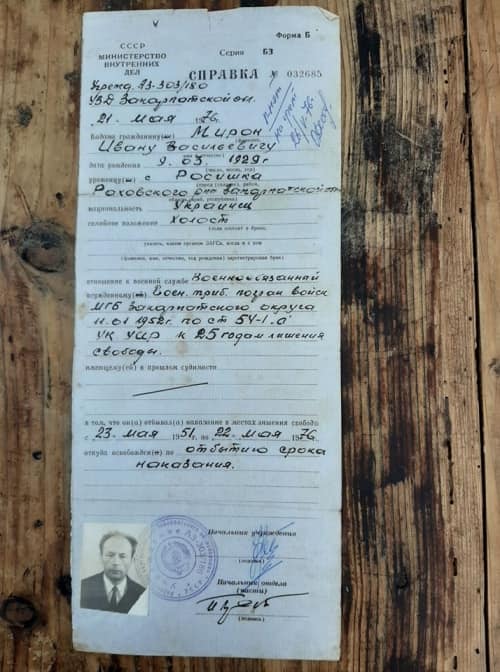 Форма Б
СССР
МИНИСТЕРСТВО
ВНУТРЕННИХ
ДЕЛ
Серия БЭ
СПРАВКА № 032685
УВД Закарпатской обл.
21 мая 1976.
Выдана гражданину(ке) Мирон
Ивану Васильевичу
дата рождения 9.03.1929г
(число, месяц, год)
уроженцу(ке) с Росишка
(город (селение), район,
Раховского р-на Закарпатской обл
область, край, республика)
национальность Украинец
семейное положение холост
(если состоит в браке,
указать, каким органом ЗАГСа, когда и с кем
(фамилия, имя, отчество, год рождения) зарегистрирован брак)
отношение к военной службе Военнообязанный
осужденному(ой) Воен. триб. погран войск
МГБ Закарпатского округа
11.01 1952г. по ст 54-1 "а"
УК УССР к 25 годам лишения
свободы.
имеющему(ей) в прошлом судимости
в том, что он(а) отбывал(а) наказание в местах лишения свободы
с 23 мая 1951, по 22 мая 1976.
откуда освобожден(а) по отбытию срока
наказания.
Начальник учреждения
(подпись)
Начальник отдела
(части)
(подпись)